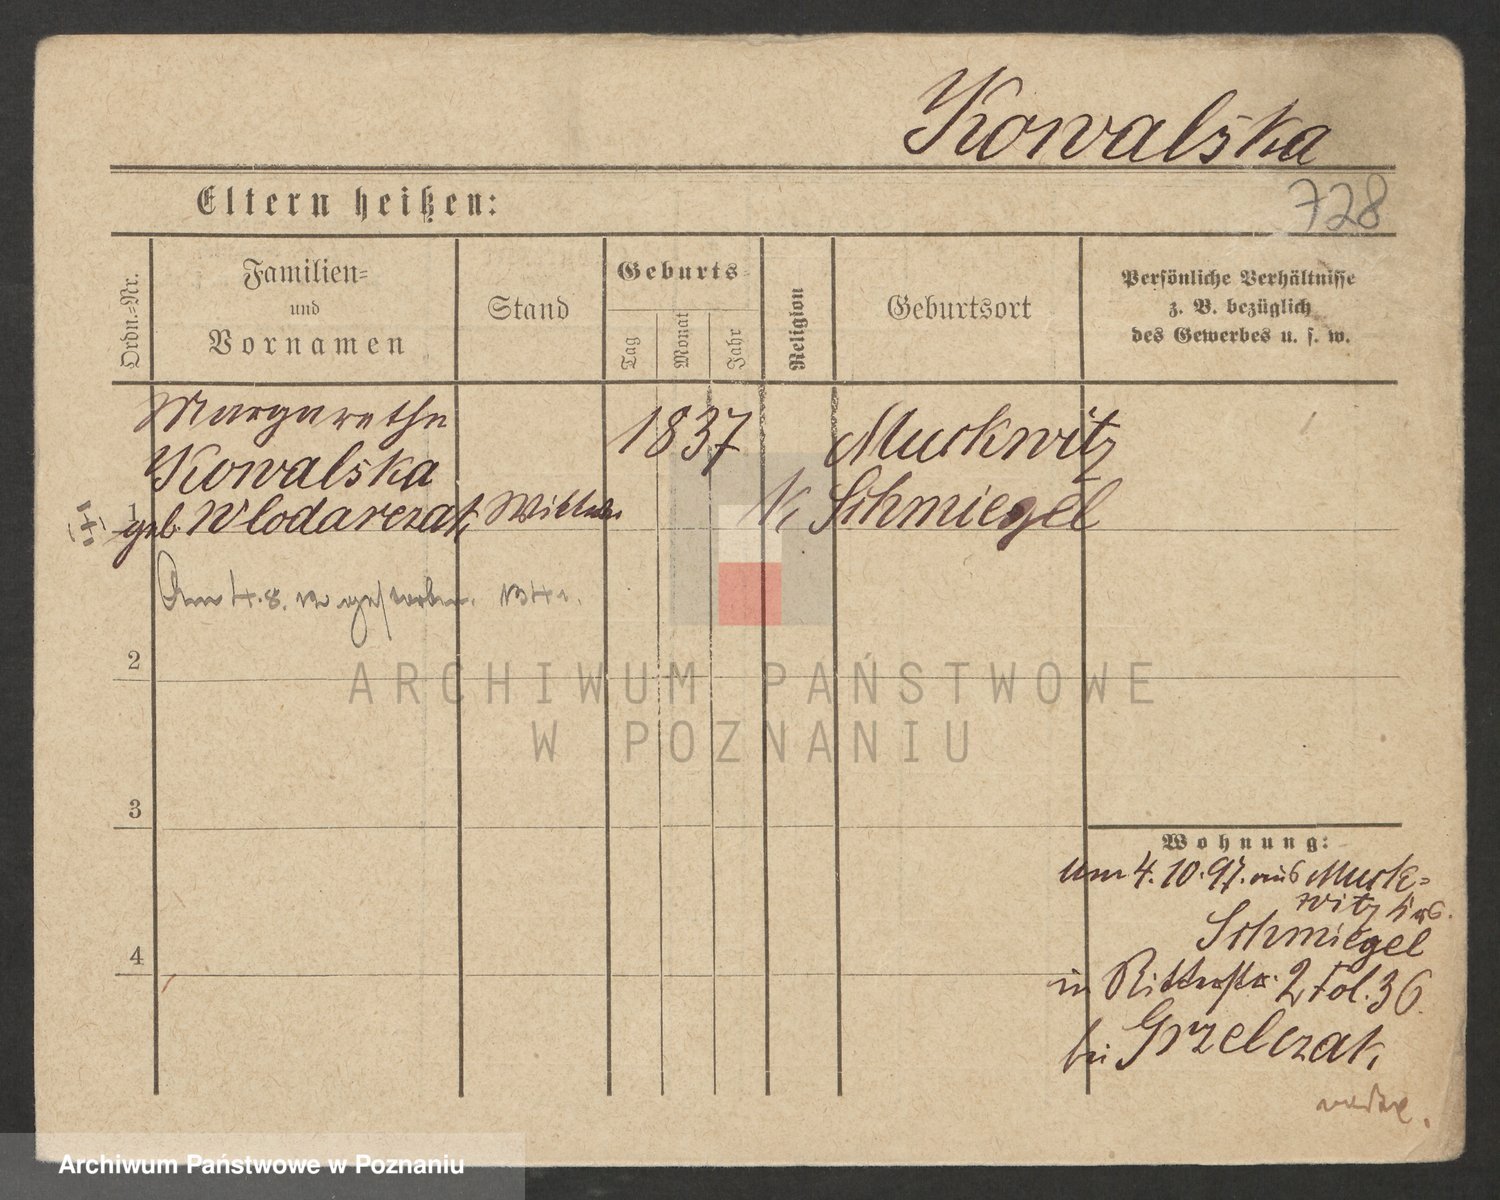 Kowalska
728
Eltern heißen:
Ordn.-Nr.
Familien-
und
Vornamen
Stand
Geburts-
Tag
Monat
Jahr
Religion
Geburtsort
Persönliche Verhältnisse
z. B. bezüglich
des Gewerbes u. s. w.
Margarethe
Kowalska
1
geb. Wlodarczak
Wittwe
1837
k.
Murkwitz
Schmiegel
Am 4.8. gestorben.
2
3
4
Wohnung:
Um 4.10.97. aus Murk-
witz Krs.
Schmiegel
in Ritterstr. 2 Fol. 36.
bei Grzelczak
ARCHIWUM PAŃSTWOWE
W POZNANIU
Archiwum Państwowe w Poznaniu